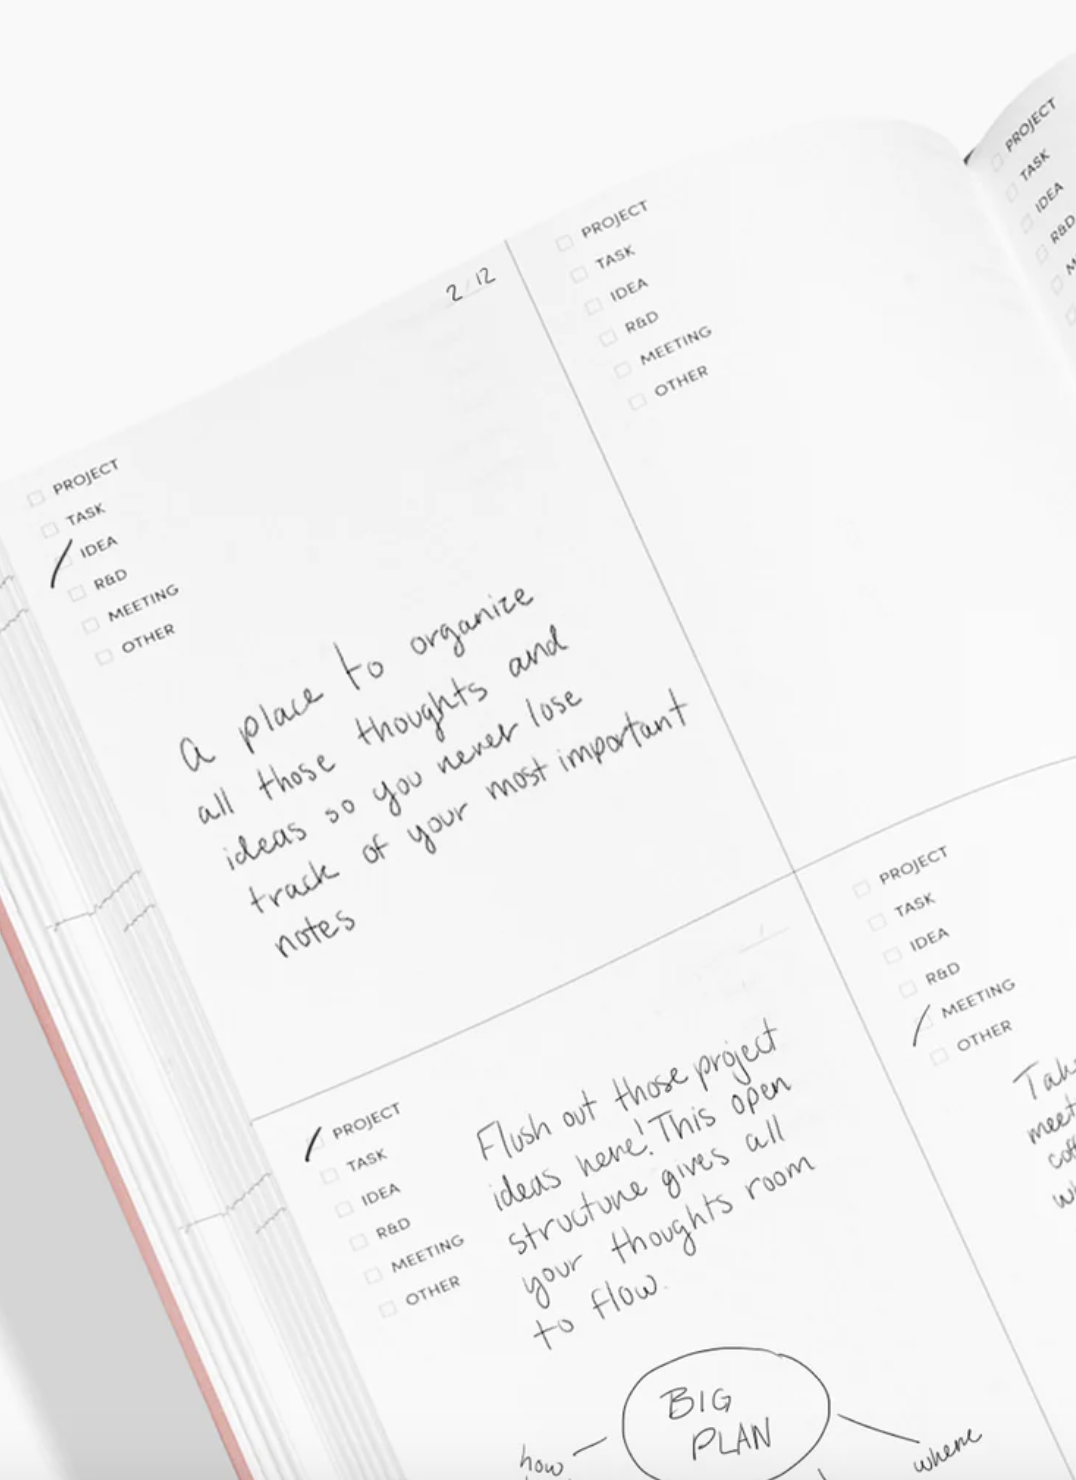 2/12
PROJECT
TASK
IDEA
R&D
MEETING
OTHER
a place to organize
all those thoughts and
ideas so you never lose
track of your most important
notes
PROJECT
TASK
IDEA
R&D
MEETING
OTHER
PROJECT
TASK
IDEA
R&D
PROJECT
TASK
IDEA
R&D
MEETING
OTHER
Flush out those project
ideas here! This open
structure gives all
your thoughts room
to flow.
BIG
PLAN
how
where
PROJECT
TASK
IDEA
R&D
MEETING
OTHER